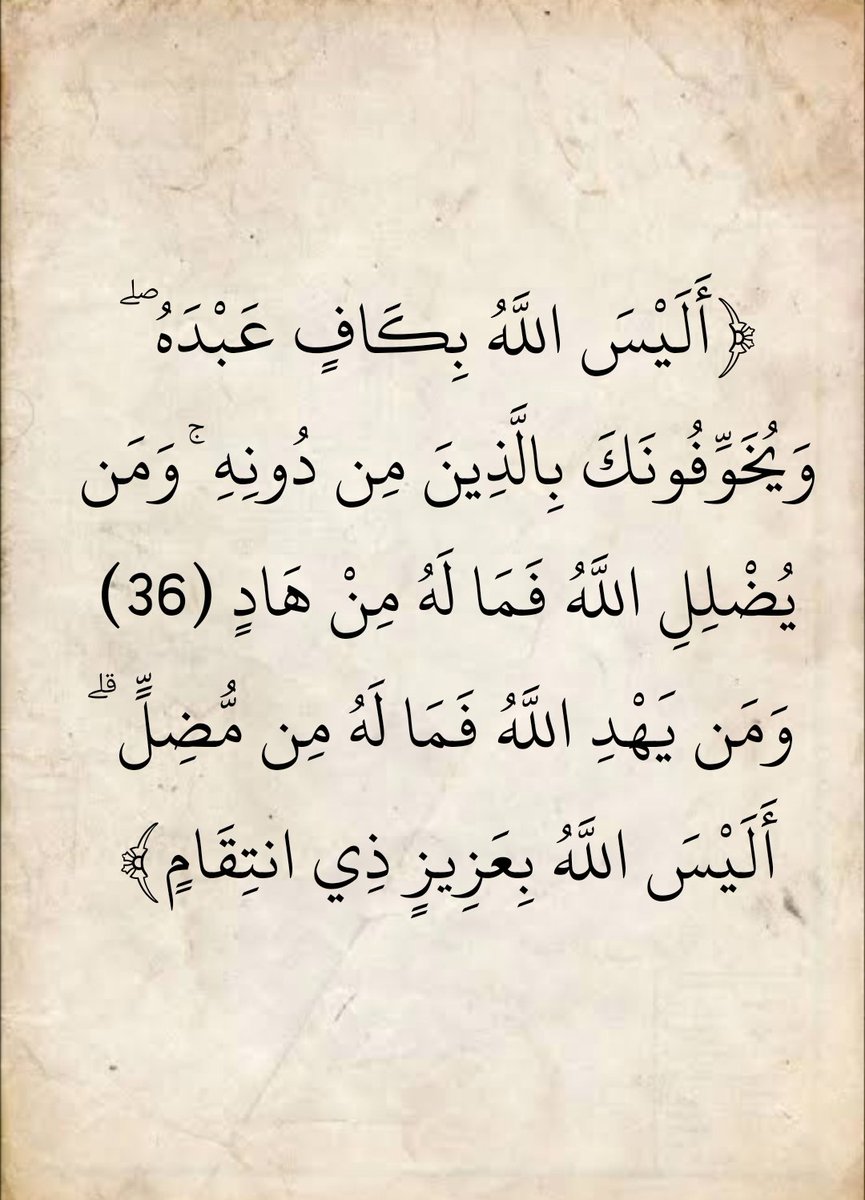 ﴿أَلَيْسَ اللَّهُ بِكَافٍ عَبْدَهُ ۖ
وَيُخَوِّفُونَكَ بِالَّذِينَ مِن دُونِهِ ۚ وَمَن
يُضْلِلِ اللَّهُ فَمَا لَهُ مِنْ هَادٍ (36)
وَمَن يَهْدِ اللَّهُ فَمَا لَهُ مِن مُّضِلٍّ ۗ
أَلَيْسَ اللَّهُ بِعَزِيزٍ ذِي انتِقَامٍ﴾